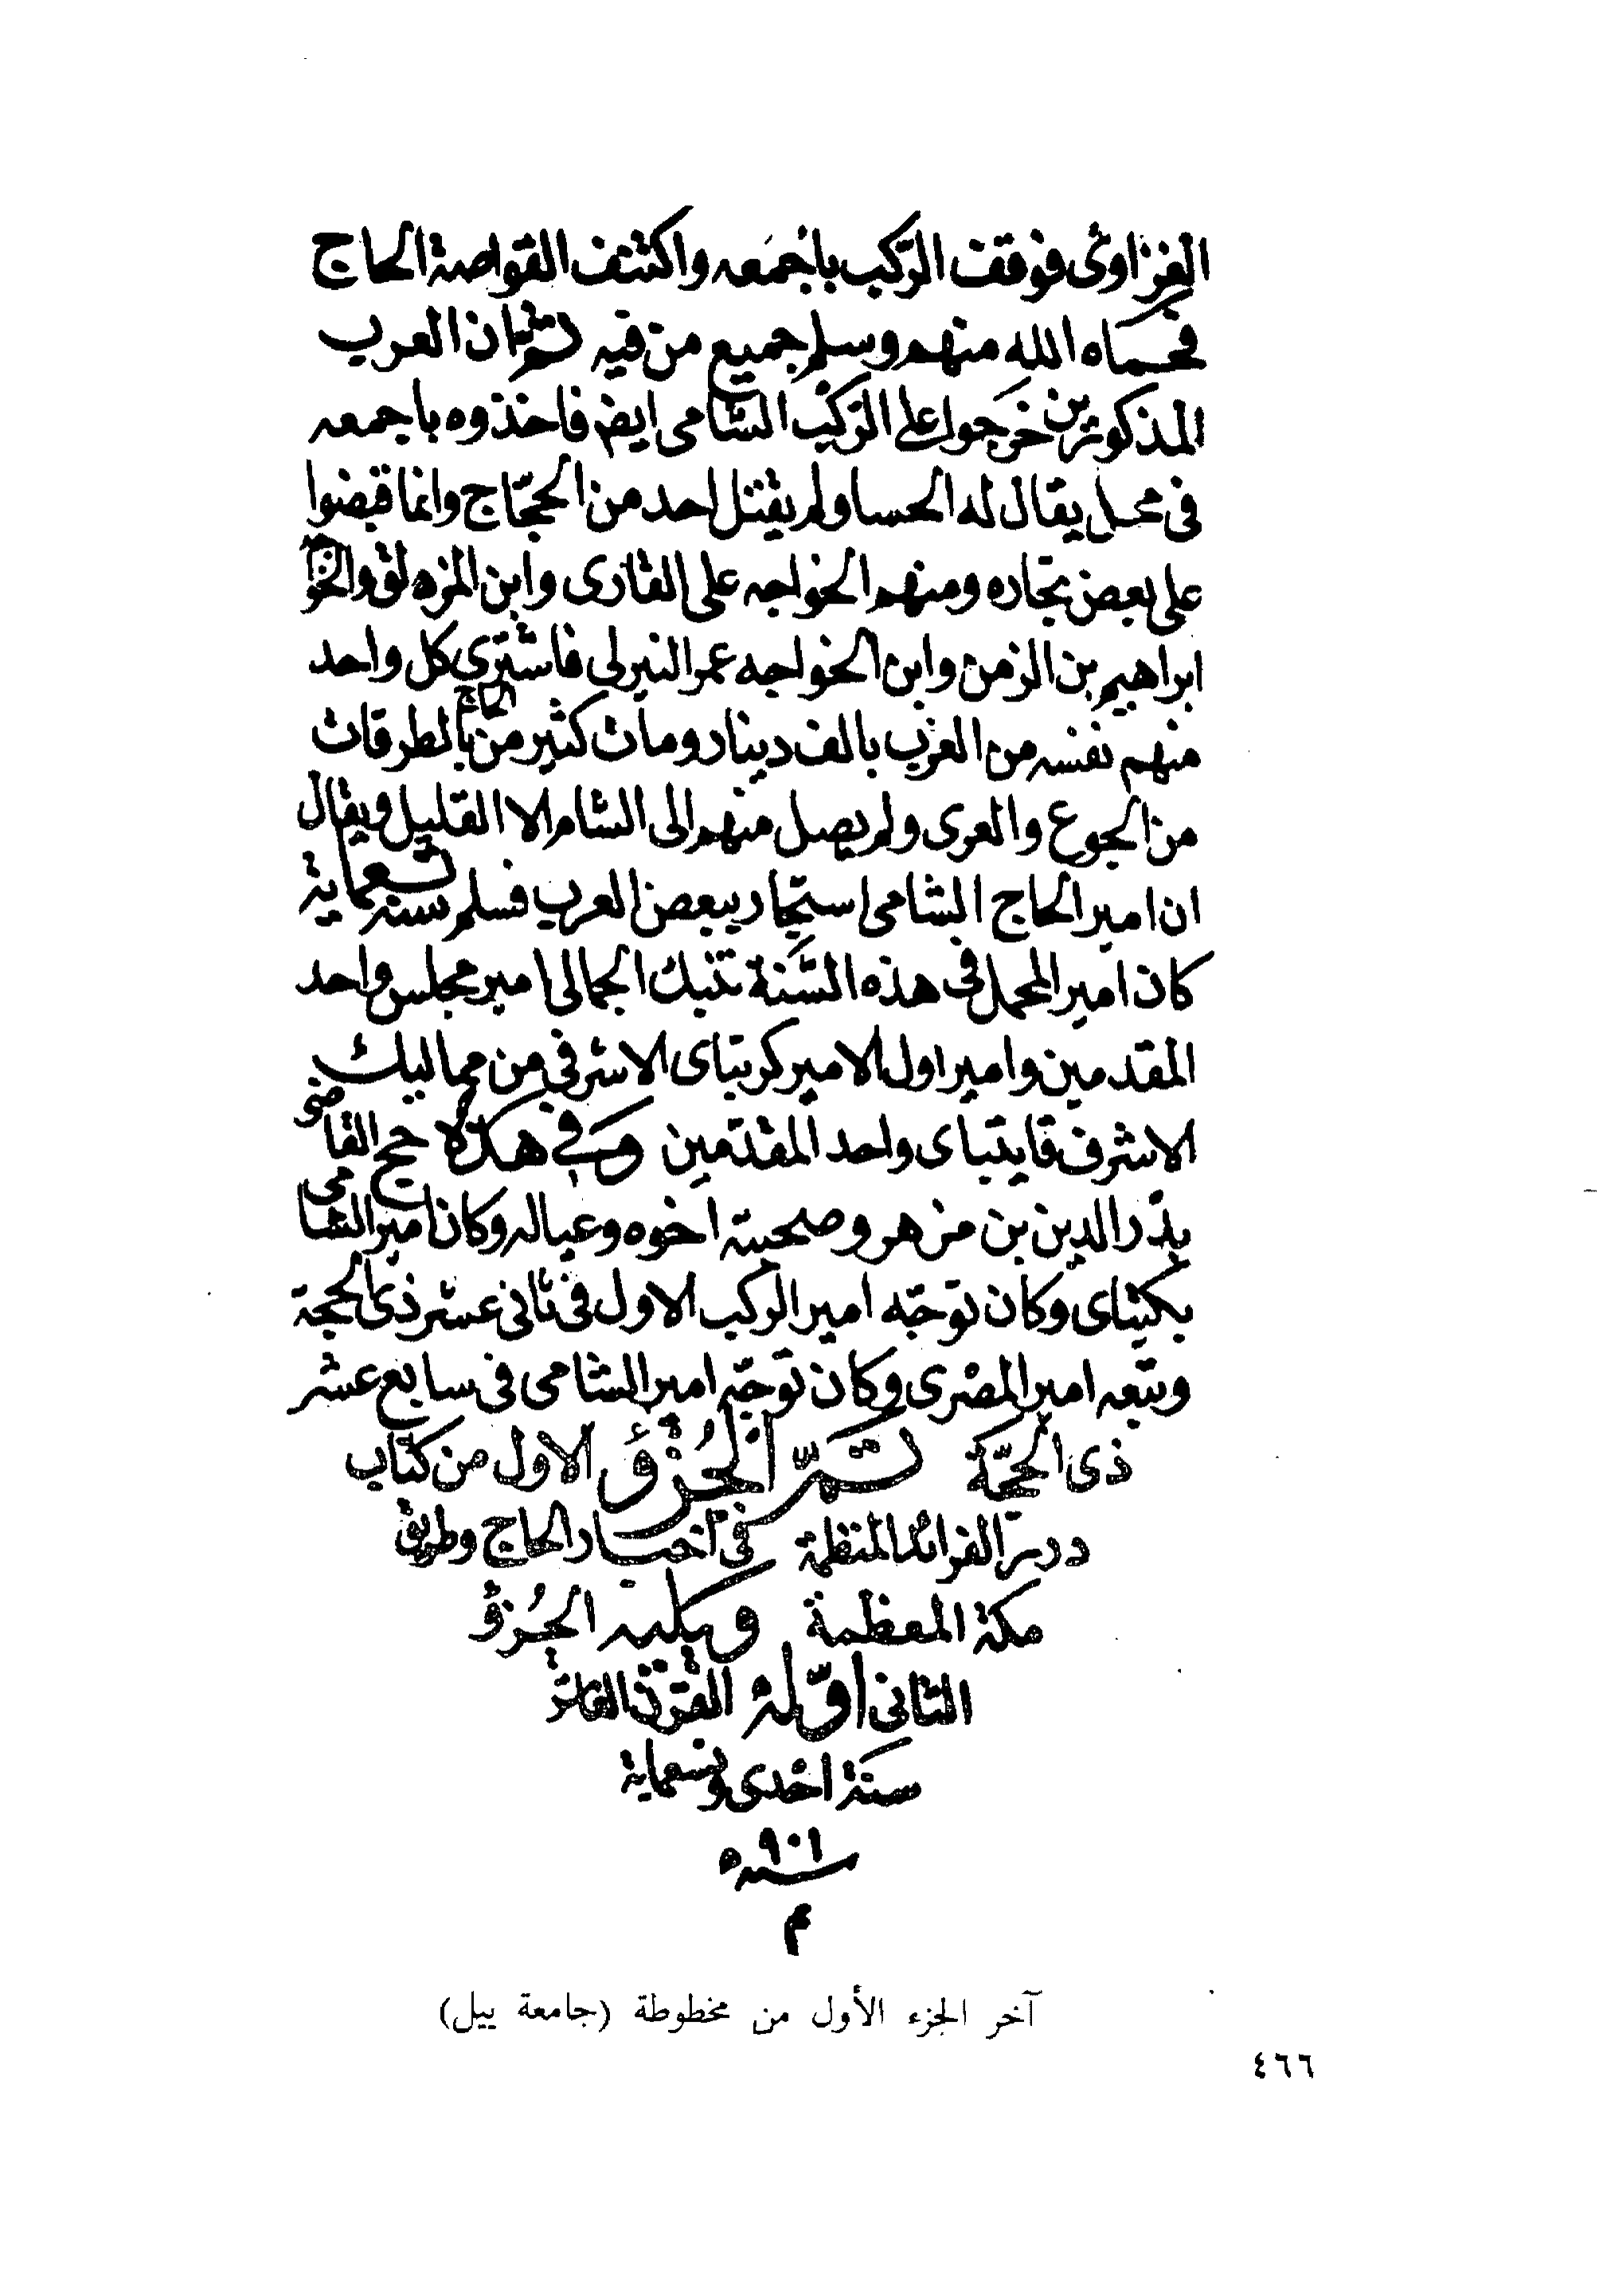 الغزاوى فوقف الركب باجمعه واكتنف القواصة الحاج
فحماه الله منهم وسلم جميع من فيه ثم ان العرب
المذكورين خرجوا على الركب الشامى ايض فاخذوه باجمعه
فى محل يقال له الحسا ولم يقتل احد من الحجّاج وانما قبضوا
على بعض تجاره ومنهم الخواجه على القارى وابن المزلق والخوا
ابراهيم بن الزمن وابن الخواجه عمر النيربى فاشترى كل واحد
منهم نفسه من العرب بالف دينار ومات كثير من الحاج بالطرقات
من الجوع والعرى ولم يصل منهم الى الشام الا القليل ويقال
ان امير الحاج الشامى استجار ببعض العرب فسلم سنة تسعماية
كان امير المحمل فى هذه السّنة تنبك الجمالى امير مجلس واحد
المقدمين وامير اول الامير كرتباى الاشرفى من مماليك
الاشرف قايتباى واحد المقدّمين وفى هذه حج القاضى
بدر الدين بن مزهر وصحبته اخوه وعياله وكان امير الشامى
بكتباى وكان توجّه امير الركب الاول فى ثانى عشر ذى الحجة
وتبعه امير المصرى وكان توجّه امير الشامى فى سابع عشر
ذى الحجّة تمّ الجُزؤ الاول من كتاب
درر الفرائد المنظمة فى اخبار الحاج وطريق
مكة المعظمة ويليه الجُزؤ
الثانى اوّله القرن العاشر
سنة احدى وتسعماية
سنه ٩٠١
م
آخر الجزء الأول من مخطوطة (جامعة ييل)
٤٦٦